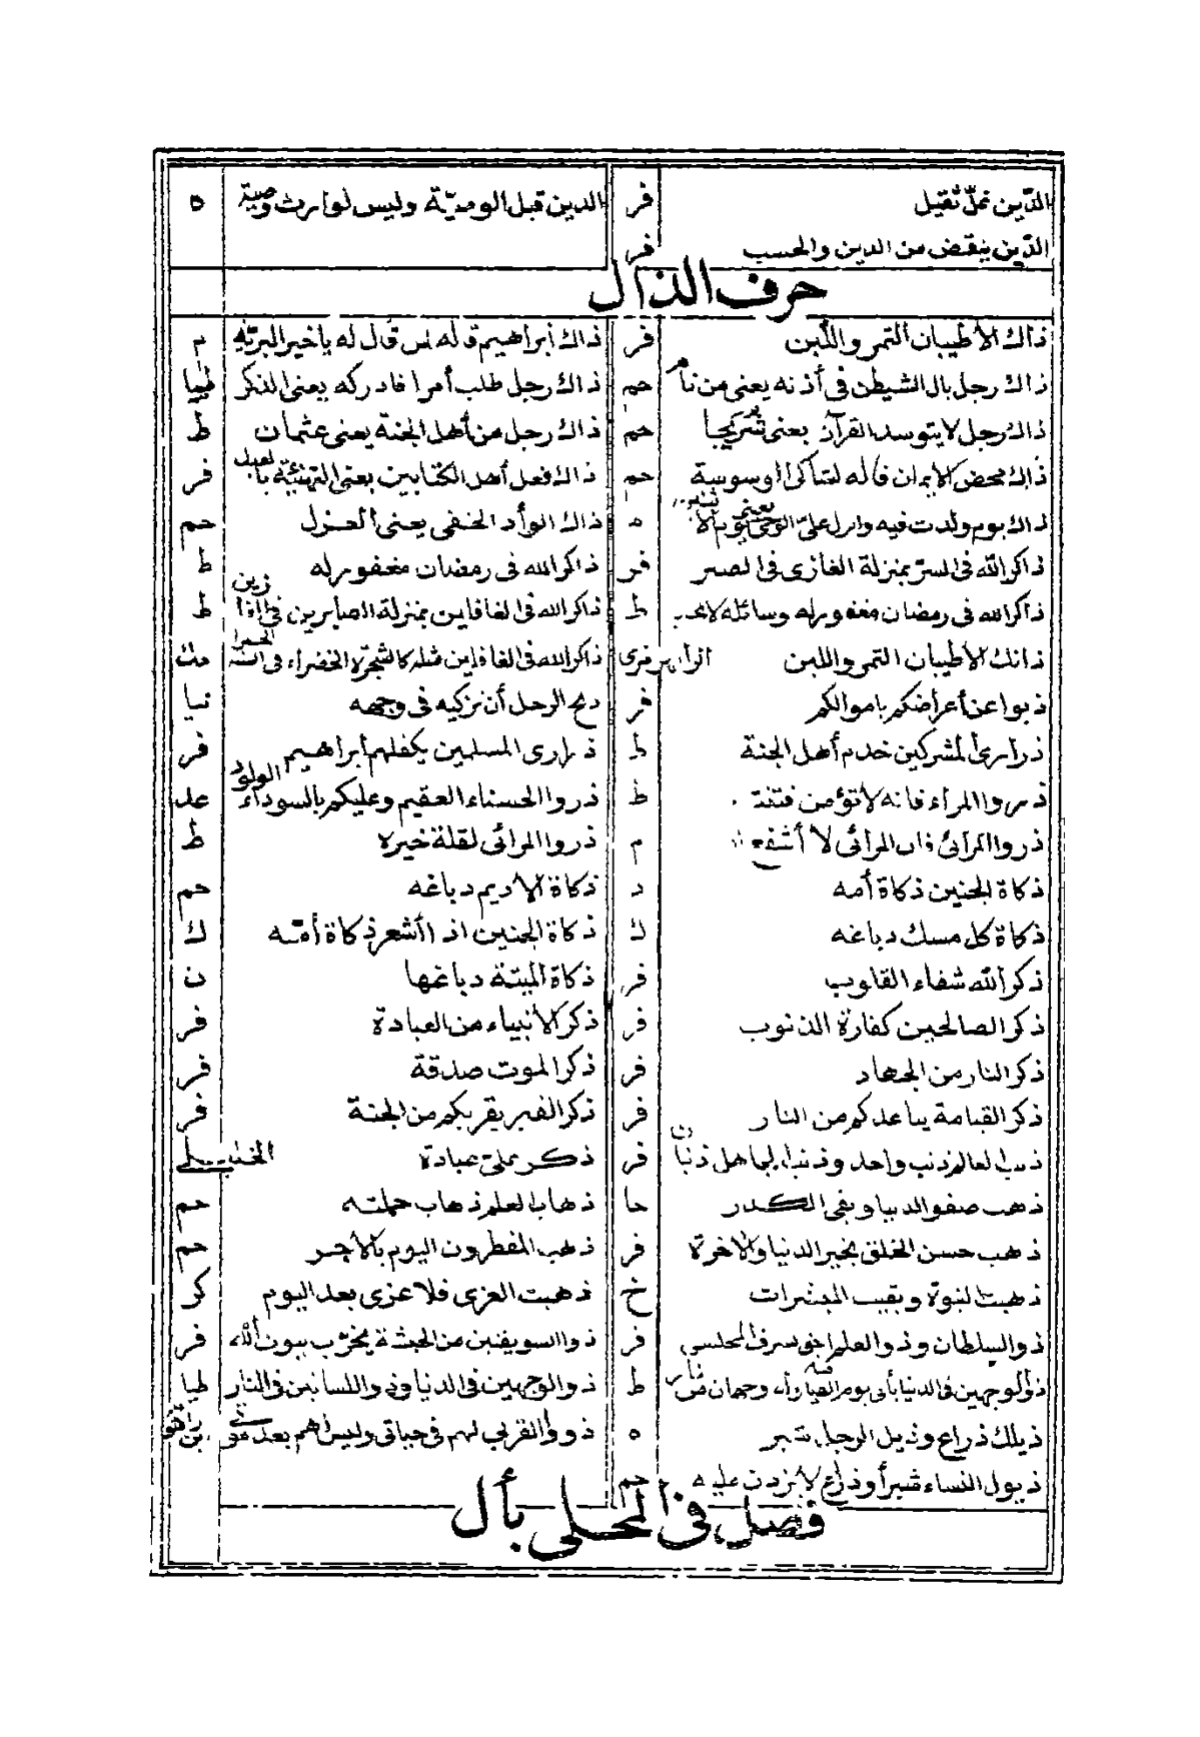 الدّين غلّ ثقيل فر الدين قبل الوصيّة وليس لوارث وصية ه
الدّين ينقص من الدين والحسب فر
حرف الذال
ذاك الأطيبان التمر واللبن فر ذاك ابراهيم قاله لمن قال له يا خير البريّة م
ذاك رجل بال الشيطن فى أذنه يعنى من نام حم ذاك رجل طلب أمرا فادركه يعنى الذكر طيا
ذاك رجل لا يتوسد القرآن يعنى شريحا حم ذاك رجل من أهل الجنة يعنى عثمان ط
ذاك محض الايمان قاله لمن شاكى الوسوسة حم ذاك فعل أهل الكتابين يعنى التهنئة بالعيد فر
ذاك يوم ولدت فيه وانزل علىّ الوحى يعنى يوم ه ذاك الوأد الخفى يعنى العزل حم
ذاكر الله فى السر بمنزلة الغازى فى فر ذاكر الله فى رمضان مغفور له ط
ذاكر الله فى رمضان مغفور له وسائله لا يخيب ط ذاكر الله فى الغافلين بمنزلة الصابرين فى الفارّين ط
ذانك الأطيبان التمر واللبن ذاكر الله فى الغافلين مثله كالشجرة الخضراء فى
ذبوا عن أعراضكم باموالكم فر ذبح الرجل أن تزكيه فى وجهه نيا
ذرارى المشركين خدم أهل الجنة ط ذرارى المسلمين يكفلهم ابراهيم فر
ذروا المراء فانه لا تؤمن فتنته ط ذروا الحسناء العقيم وعليكم بالسوداء الولود عد
ذروا المرائ فان المرائى لا أشفع م ذروا المرائى لقلة خيره ط
ذكاة الجنين ذكاة أمه د ذكاة الاديم دباغه حم
ذكاة كل مسك دباغه ك ذكاة الجنين اذا أشعر ذكاة أمّه ك
ذكر الله شفاء القلوب فر ذكاة الميتة دباغها ن
ذكر الصالحين كفارة الذنوب فر ذكر الأنبياء من العبادة فر
ذكر النار من الجهاد فر ذكر الموت صدقة فر
ذكر القيامة يباعدكم من النار فر ذكر القبر يقربكم من الجنة فر
ذنب العالم ذنب واحد وذنب الجاهل ذنبان فر ذكر على عبادة
ذهب صفو الدنيا وبقى الكدر حا ذهاب العلم ذهاب حملته حم
ذهب حسن الخلق بخير الدنيا والآخرة فر ذهب المفطرون اليوم بالأجر حم
ذهبت النبوة وبقيت المبشرات خ ذهبت العزى فلا عزى بعد اليوم كر
ذو السلطان وذو العلم أحق بشرف المجلس فر ذو السويقتين من الحبشة يخرّب بيت الله فر
ذو الوجهين فى الدنيا يأتى يوم القيامة وله وجهان من نار ط ذو الوجهين فى الدنيا وذو اللسانين فى النار طيا
ذيلك ذراع وذيل الرجل شبر ه ذووا القربى لهم فى حياتى وليس لهم بعد موتى
ذيول النساء شبر أو ذراع لا يزدن عليه حم
فصل فى المحلى بأل